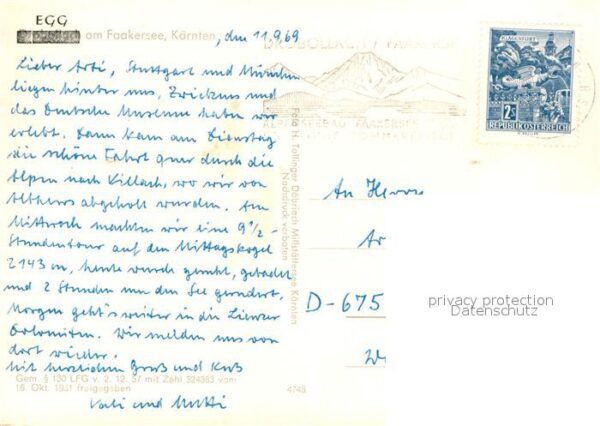 EGG
am Faakersee, Kärnten, den 11.9.69
Lieber Arti, Stuttgart und München
liegen hinter uns, Zirkus und
das Deutsche Museum haben wir
erlebt. Dann kam am Dienstag
die schöne Fahrt quer durch die
Alpen nach Villach, wo wir von
abgeholt wurden. Am
Mittwoch machten wir eine 9½-
Stundentour auf den Mittagskogel
2143 m, heute wurde geruht, gebadet
und 2 Stunden um den See gerudert.
Morgen geht's weiter in die Lienzer
Dolomiten. Wir melden uns von
dort wieder.
Mit herzlichem Gruß und Kuß
Vati und Mutti
Gem. § 130 LFG v. 2. 12. 57 mit Zahl 324383 vom
16. Okt. 1961 freigegeben
4748
Foto H. Tollinger, Döbriach, Millstättersee, Kärnten
Nachdruck verboten
DROBOLLACH / FAAKERSEE
KLAGENFURT
2S
REPUBLIK ÖSTERREICH
An Herrn
Ar
D-675
privacy protection
Datenschutz